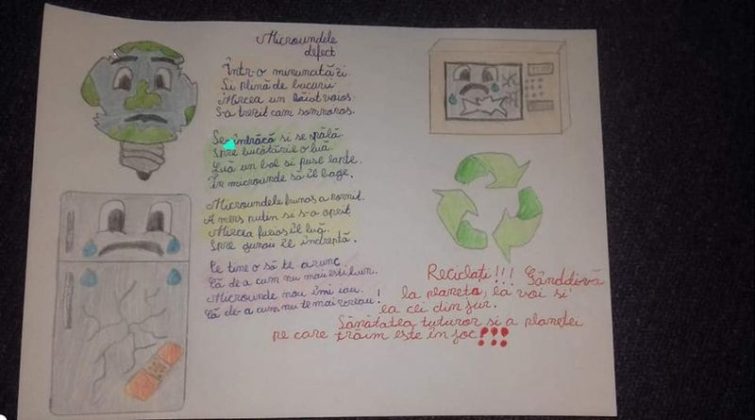 Microundele
defect
Într-o minunată zi
Și plină de bucurii
Mircea un băiat voios
S-a trezit cam somnoros.
Se îmbrăcă si se spălă
Spre bucătărie o luă.
Luă un bol si puse lapte.
În microunde să îl bage.
Microundele frumos a pornit.
A mers puțin si s-a oprit
Mircea furios îl luă.
Spre gunoi îl îndreptă.
Pe tine o să te arunc.
Că de-a cum nu mai esti bun.
Microunde nou îmi iau.
Că de-a cum nu te mai vreau!
Reciclați!!! Gândiți-vă
la planeta, la voi si
la cei din jur.
Sănătatea tuturor si a planetei
pe care trăim este în joc!!!